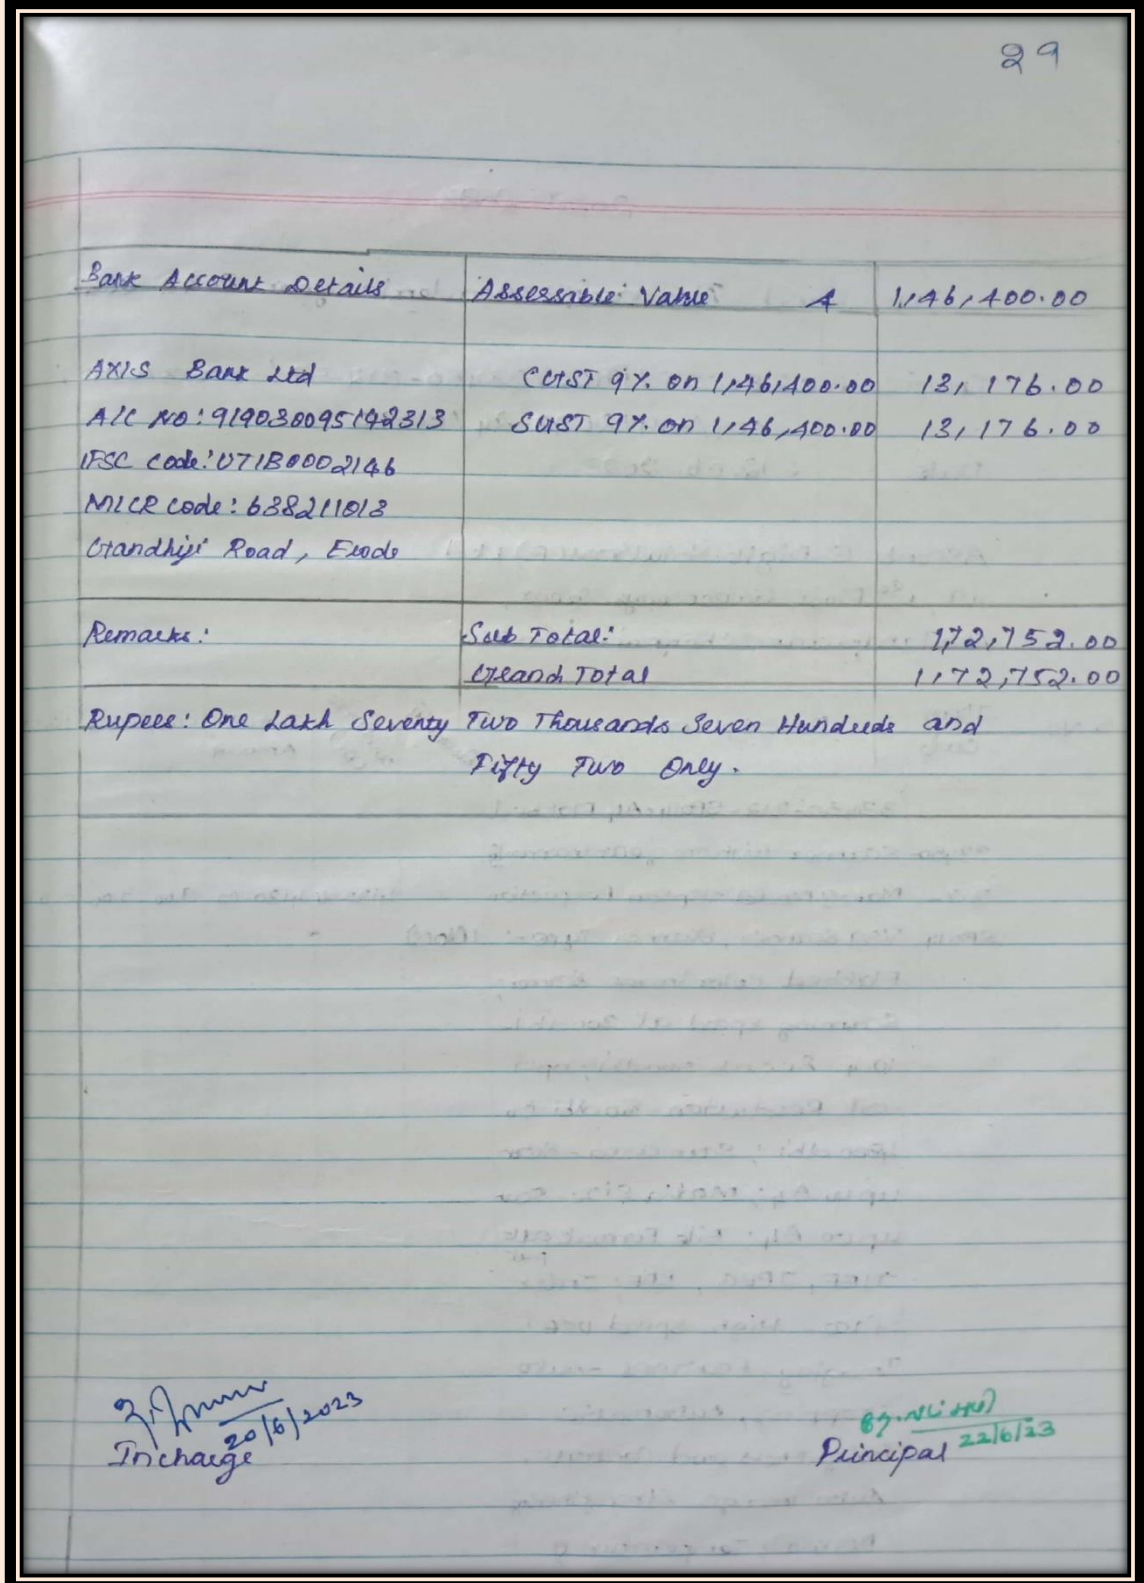 29
Bank Account Details Assessable Value A 1,46,400.00
AXIS Bank Ltd CGST 9% on 1,46,400.00 13,176.00
A/C No: 919030095142313 SGST 9% on 1,46,400.00 13,176.00
IFSC code: UTIB0002146
MICR code: 638211013
Gandhiji Road, Erode
Remarks: Sub Total: 1,72,752.00
Grand Total 1,72,752.00
Rupees: One Lakh Seventy Two Thousands Seven Hundreds and
Fifty Two Only.
20/6/2023
Incharge
22/6/23
Principal